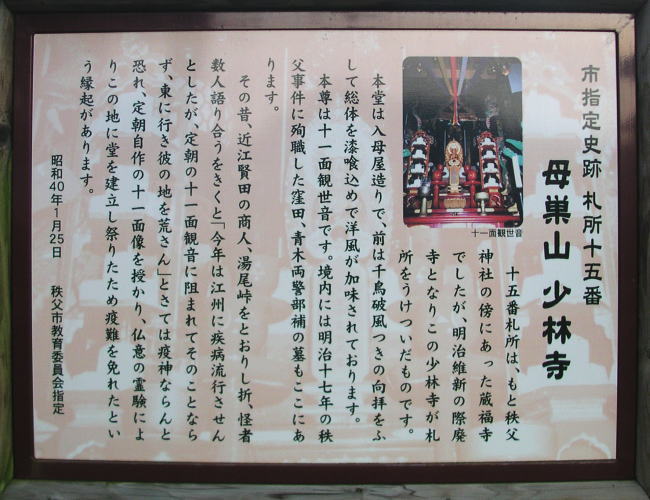 市指定史跡 札所十五番
母巣山 少林寺
十一面観世音
十五番札所は、もと秩父
神社の傍にあった蔵福寺
でしたが、明治維新の際廃
寺となりこの少林寺が札
所をうけついだものです。
本堂は入母屋造りで、前は千鳥破風つきの向拝をふ
して総体を漆喰込めで洋風が加味されております。
本尊は十一面観世音です。境内には明治十七年の秩
父事件に殉職した窪田、青木両警部補の墓もここにあ
ります。
その昔、近江賢田の商人、湯尾峠をとおりし折、怪者
数人語り合うをきくと「今年は江州に疾病流行させん
としたが、定朝の十一面観音に阻まれてそのことなら
ず、東に行き彼の地を荒さん」とさては疫神ならんと
恐れ、定朝自作の十一面像を授かり、仏意の霊験によ
りこの地に堂を建立し祭りたため疫難を免れたとい
う縁起があります。
昭和40年1月25日 秩父市教育委員会指定